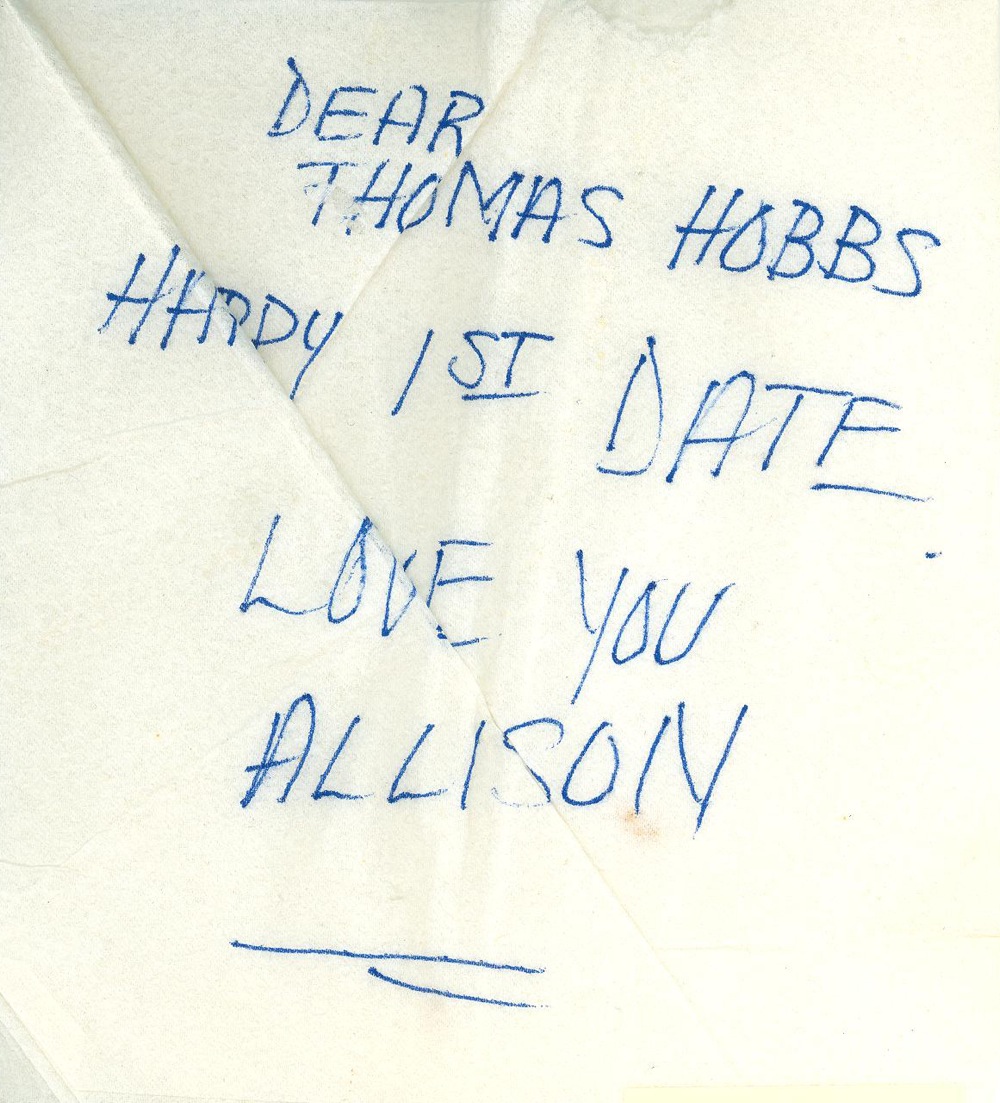 DEAR
THOMAS HOBBS
HARDY 1ST DATE
LOVE YOU
ALLISON